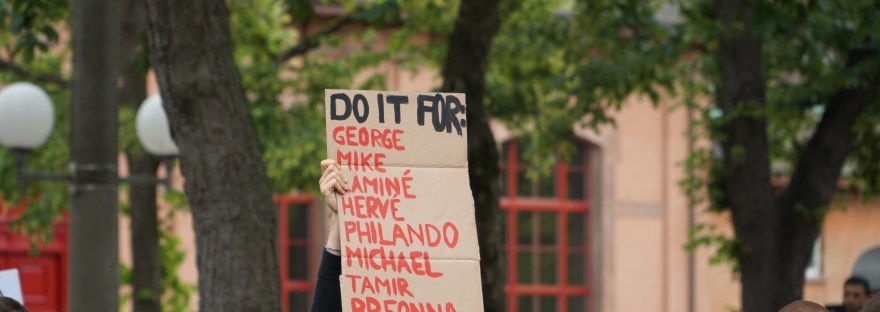 DO IT FOR:
GEORGE
MIKE
LAMINÉ
HERVÉ
PHILANDO
MICHAEL
TAMIR
BREONNA